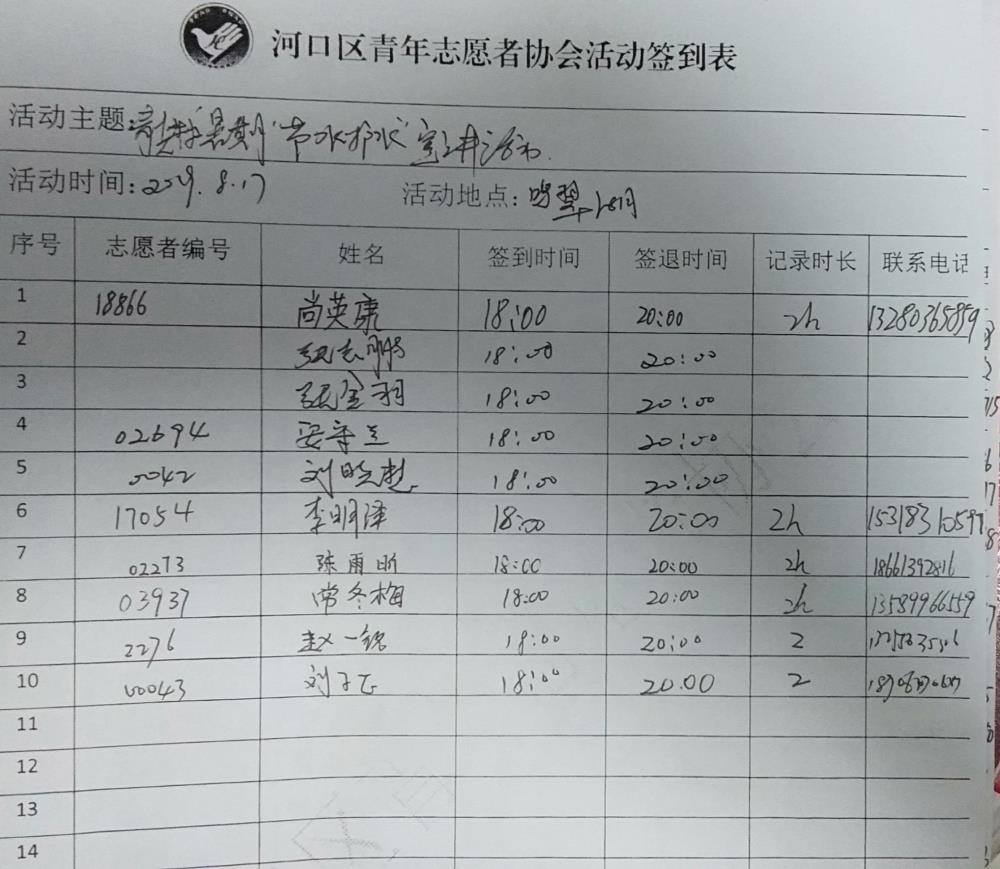 河口区青年志愿者协会活动签到表
活动主题: 暑期“节水护水”宣讲活动.
活动时间: 2019.8.17
活动地点: 鸣翠
序号 志愿者编号 姓名 签到时间 签退时间 记录时长 联系电话
1 18866 尚英康 18:00 20:00 2h 13280365859
2 张志鹏 18:00 20:00
3 张金羽 18:00 20:00
4 02694 安守兰 18:00 20:00
5 0042 刘晓慧 18:00 20:00
6 17054 李明泽 18:00 20:00 2h
7 02273 陈雨昕 18:00 20:00 2h 18661392816
8 03937 常冬梅 18:00 20:00 2h 13589966559
9 2276 赵一铭 18:00 20:00 2
10 00043 刘子飞 18:00 20.00 2
11
12
13
14